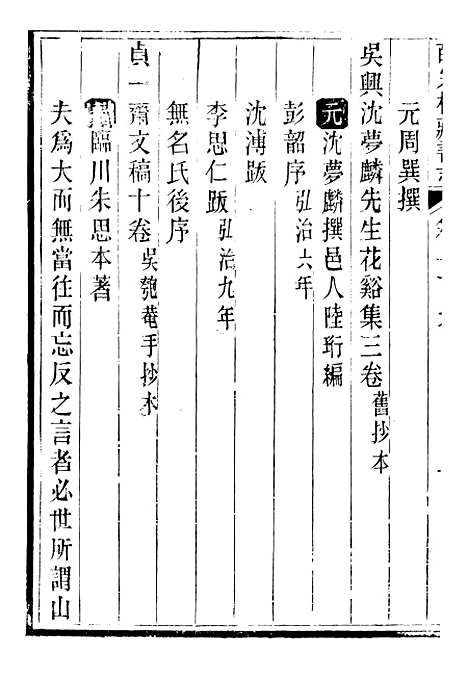 元周巽撰
吳興沈夢麟先生花谿集三卷 舊抄本
元沈夢麟撰邑人陸珩編
彭韶序 弘治六年
沈溥跋
李思仁跋 弘治九年
無名氏後序
貞一齋文稿十卷 吳匏菴手抄本
臨川朱思本著
夫爲大而無當往而忘反之言者必世所謂山